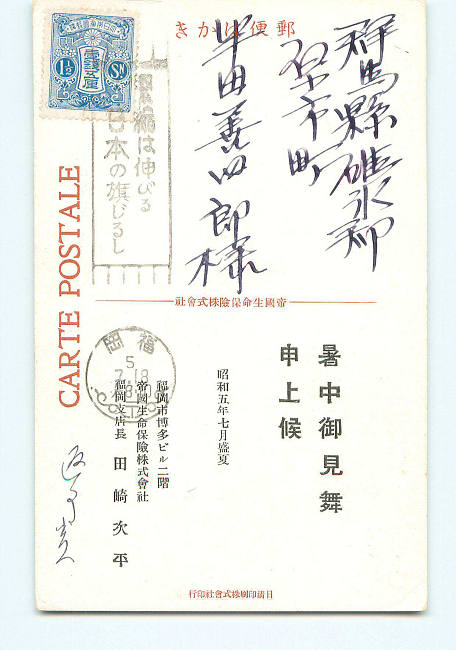 きかは便郵
大日本帝國郵便
1½ Sn
は伸びる
日本の旗じるし
群馬縣碓氷郡
町
半田善四郎様
CARTE POSTALE
社會式株險保命生國帝
暑中御見舞
申上候
昭和五年七月盛夏
福岡市博多ビル二階
帝國生命保險株式會社
福岡支店長 田崎次平
福岡
5
7.18
行印社會式株刷印淸日